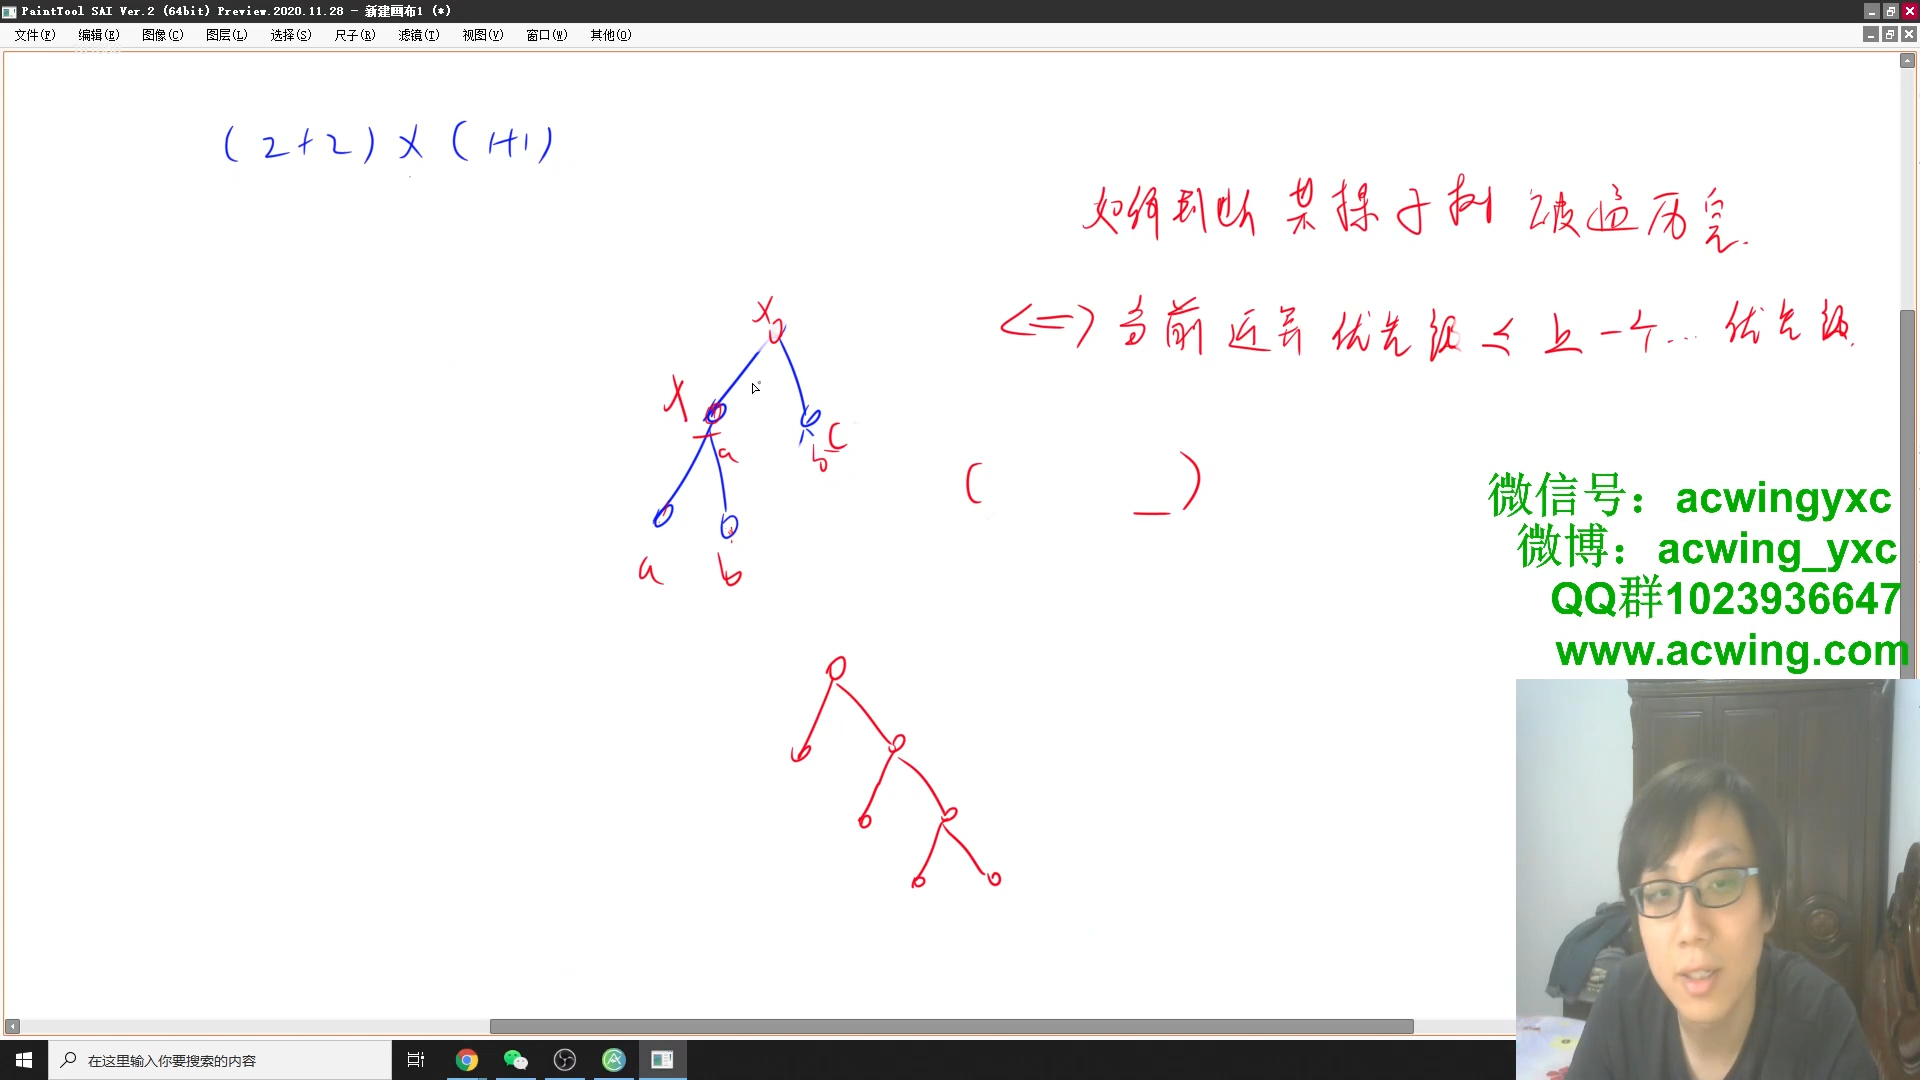 PaintTool SAI Ver.2 (64bit) Preview.2020.11.28 - 新建画布1 (*)
文件(F) 编辑(E) 图像(C) 图层(L) 选择(S) 尺子(R) 滤镜(T) 视图(V) 窗口(W) 其他(O)
(2+2)×(1+1)
如何判断 某棵子树 被遍历完.
<=> 当前运算优先级 ≤ 上一个... 优先级.
×
×
a
b c
a b
( _ )
微信号：acwingyxc
微博：acwing_yxc
QQ群1023936647
www.acwing.com
在这里输入你要搜索的内容